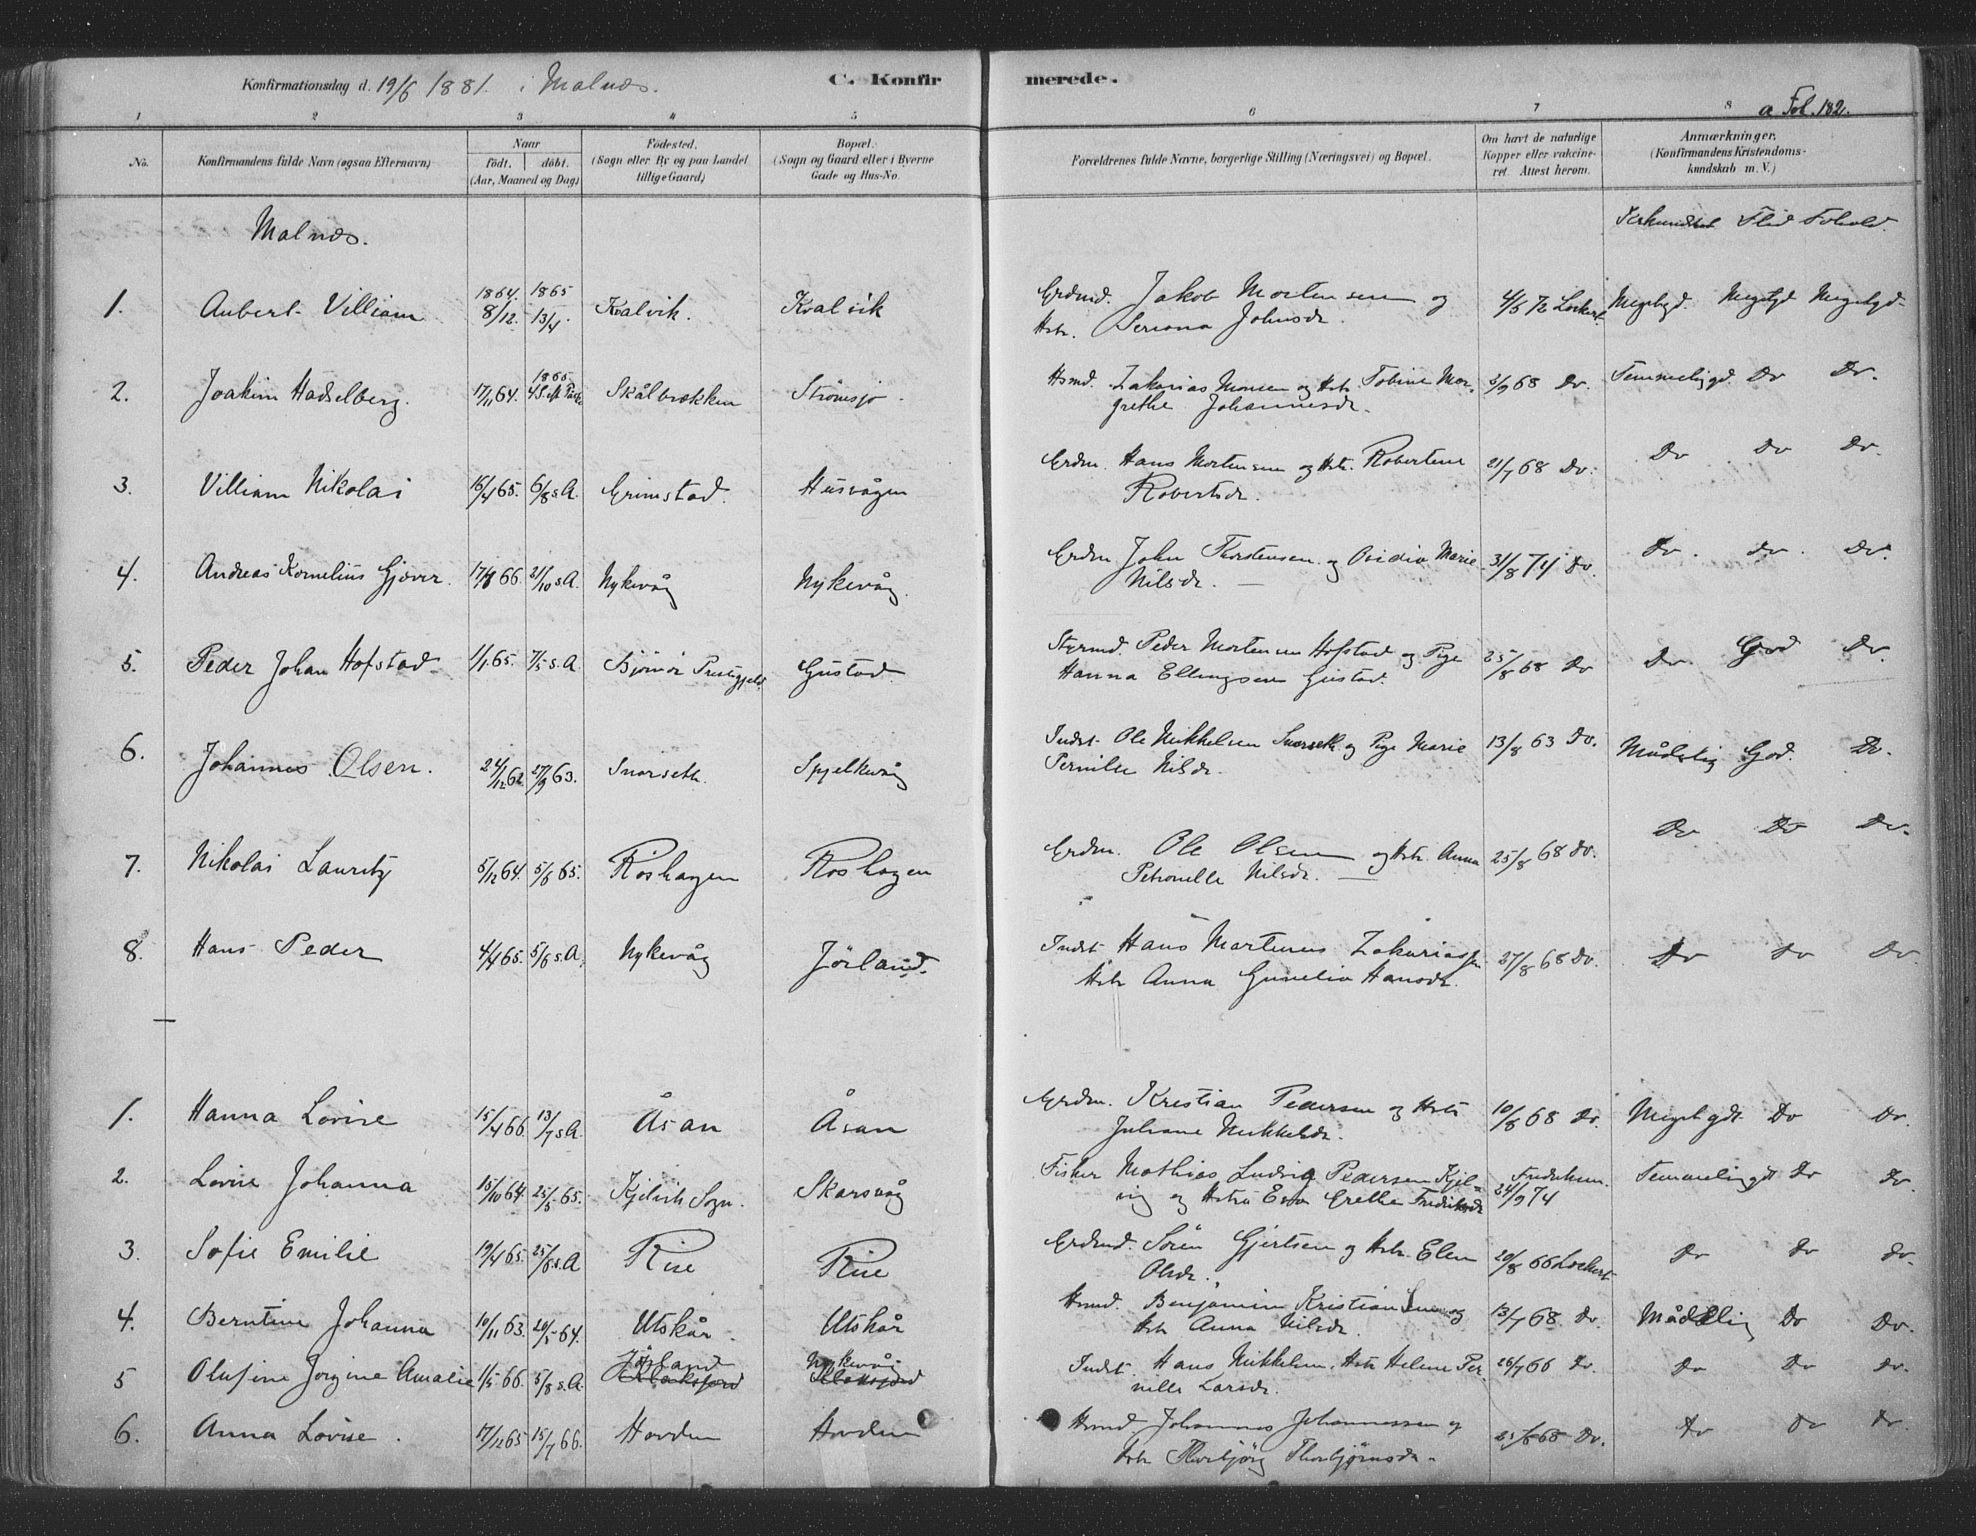 Konfirmationsdag d. 19/6 1881. i Malnæs.
C. Konfirmerede.
a Fol. 182.
1 2 3 4 5 6 7 8
No. Konfirmandens fulde Navn (ogsaa Efternavn) Naar födt, döbt. (Aar, Maaned og Dag) Födested. (Sogn eller By og paa Landet tillige Gaard) Bopæl. (Sogn og Gaard eller i Byerne Gade og Hus-No. Forældrenes fulde Navne, borgerlige Stilling (Næringsvei) og Bopæl. Om havt de naturlige Kopper eller vakcineret. Attest herom. Anmærkninger. (Konfirmandens Kristendomskundskab m. V.)
Malnæs. Flid Forhold.
1. Aubert Villiam 1864. 8/12. 1865 13/4. Kvalvik. Kvalvik Grdmd. Jakob Mortensen og
Hstr. Seriana Johnsdr. 4/5 72 Lockert. Megetgd. Megetgd Megetgd
2. Joakim Hadselberg. 17/11 64. 1865 4 S. eft. Paaske Skålbrækken Strömsjo. Hsmd. Zakarias Monsen og Hstr. Tobine Mar-
grethe Johannesdr. 3/9 68 Do. Temmeligd. Do Do.
3. Villiam Nikolai 16/4 65. 6/8 s.A. Grimstad. Husvågen Grdm. Hans Mortensen og Hstr. Robertine
Robertsdr. 21/7 68 Do. Do Do Do.
4. Andreas Kornelius Gjæver. 17/8 66. 21/10 s.A. Nykevåg Nykevåg. Grdm John Thorstensen og Ovidia Marie
Nilsdr. 31/8 74 Do. Do. Do. Do.
5. Peder Johan Hofstad 1/1 65. 7/5 s.A. Björnör Prestegjeld. Gustad. Styrmd. Peder Mortensen Hofstad og Pige
Hanna Ellingsen Gustad. 25/8 68 Do Do. God Do.
6. Johannes Olsen. 24/12 62 27/9 63. Snarseth. Spjelkevåg Indst. Ole Mikkelsen Snarseth og Pige Marie
Pernille Nilsdr. 13/8 63 Do. Mådelig God. Do.
7. Nikolai Lauritz 5/12 64. 5/6 65. Röshagen Röshagen Grdm. Ole Olsen og Hstr. Anna
Petronelle Nilsdr. 25/8 68 Do. Do Do Do.
8. Hans Peder 4/4 65. 5/6 s.A. Nykevåg Jörland. Indst. Hans Martinus Zakariassen
Hstr Anna Gunelia Hansdr. 27/8 68 Do. Do Do Do.
1. Hanna Lovise 15/4 66. 13/7 s.A. Åsan Åsan Grdm. Kristian Pedersen og Hstr
Juliane Mikkelsdr. 10/8 68 Do. Megetgdt. Do Do.
2. Lovise Johanna 15/10 64. 25/5 65. Kjelvik Sogn. Skarsvåg Fisker Mathias Ludvig Pedersen Kjel-
vig og Hstru Eva Grethe Fredriksdr 24/9 74 Temmeligt Do Do.
3. Sofie Emilie 19/4 65. 25/6 s.A Rise Rise Grdmd. Sören Gjertsen og Hstr. Elen
Olsdr. 20/8 66 Lockert Do Do Do.
4. Berntine Johanna 10/11 63. 20/5 64. Utskår. Utskår Hsmd. Benjamin Kristiansen og
Hstr Anna Nilsdr. 13/7 68. Do. Mådelig Do Do.
5 Olufine Jörgine Amalie 1/5 66. 5/8 s.A. Jörland Klaksjord Nykevåg Klaksjord Indst. Hans Mikkelsen. Hstr Helene Per-
nille Larsdr. 26/7 66 Do. Do Do Do.
6. Anna Lovise. 17/12 65 15/7 66. Hovden Hovden Hsmd. Johannes Johannessen og
Hstr Thorbjörg Thorbjörnsdr. 68 Do. Do Do Do